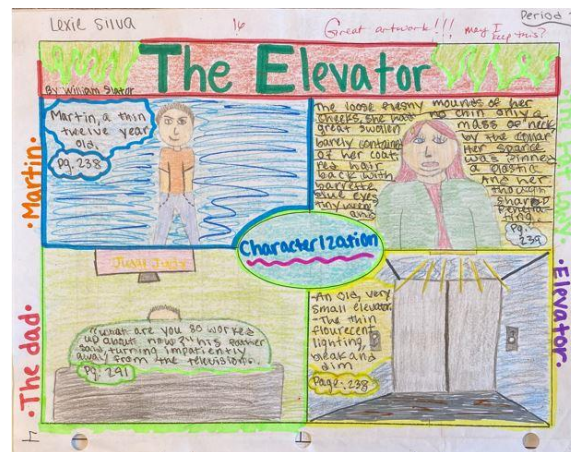 Lexie Silva
16
Great artwork!!! may I
keep this?
Period
The Elevator
By William Slator
Martin, a thin
twelve year
old.
Pg. 238
•Martin•
The loose fleshy mounds of her
cheeks, she had no chin only a
great swollen mass of neck
barely contained by the collar
of her coat. Her sparse
red hair was pinned
back with a plastic
barrette. And her
blue eyes though
tiny were sharp &
and penetra-
ting.
Pg.
239
The Fat Lady
Characterization
"What are you so worked
up about now?" his father
said, turning impatiently
away from the television..
Pg. 241
•The dad•
-An old, very
small elevator.
-The thin
flourecent
lighting,
bleak and
dim
Page: 238
•Elevator•